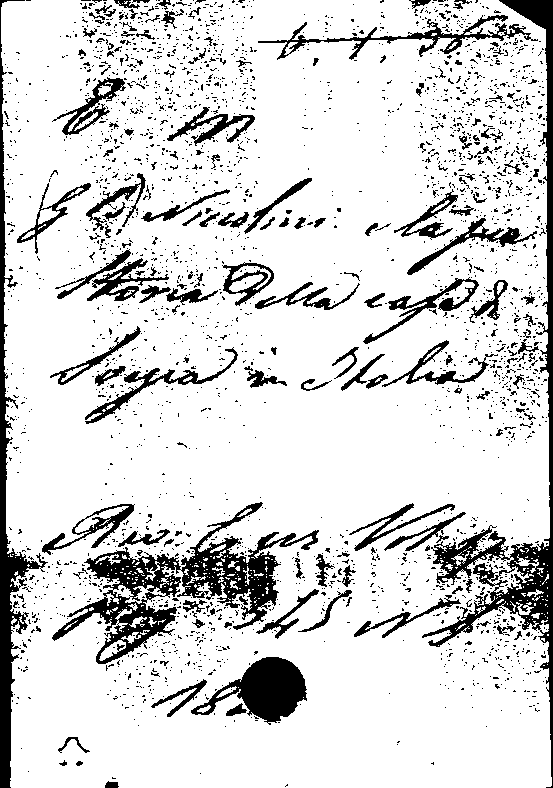 6. 1. 36
E m
(G B) Niccolini: e la sua
Storia della casa di
Svevia in Italia
Riv: Eur Vol
pag 345
18